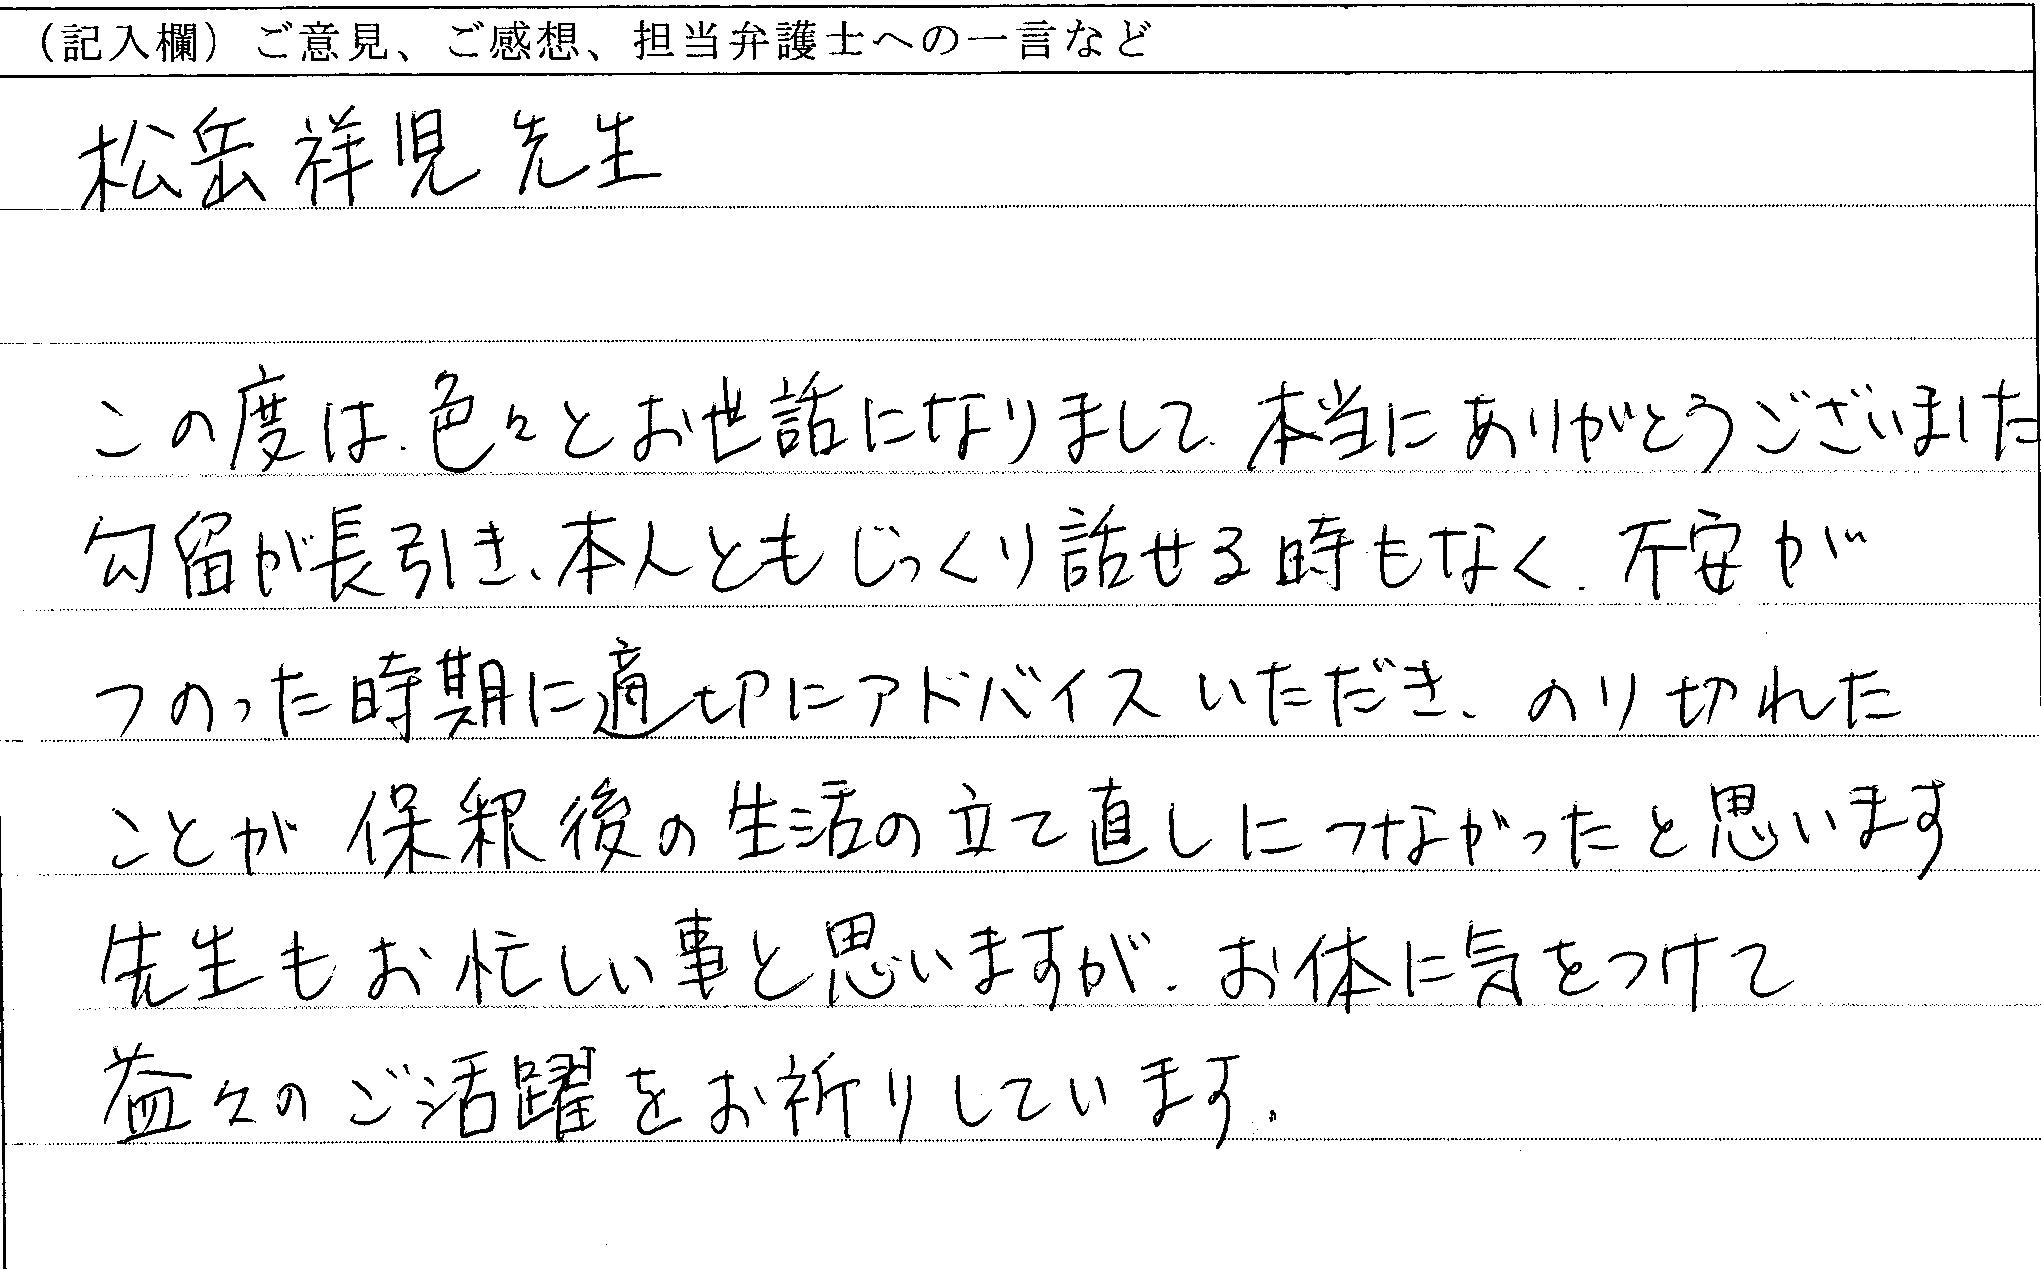 （記入欄）ご意見、ご感想、担当弁護士への一言など
松岳祥児先生
この度は、色々とお世話になりまして、本当にありがとうございました
勾留が長引き、本人ともじっくり話せる時もなく、不安が
つのった時期に適切にアドバイスいただき、のり切れた
ことが保釈後の生活の立て直しにつながったと思います
先生もお忙しい事と思いますが、お体に気をつけて
益々のご活躍をお祈りしています。